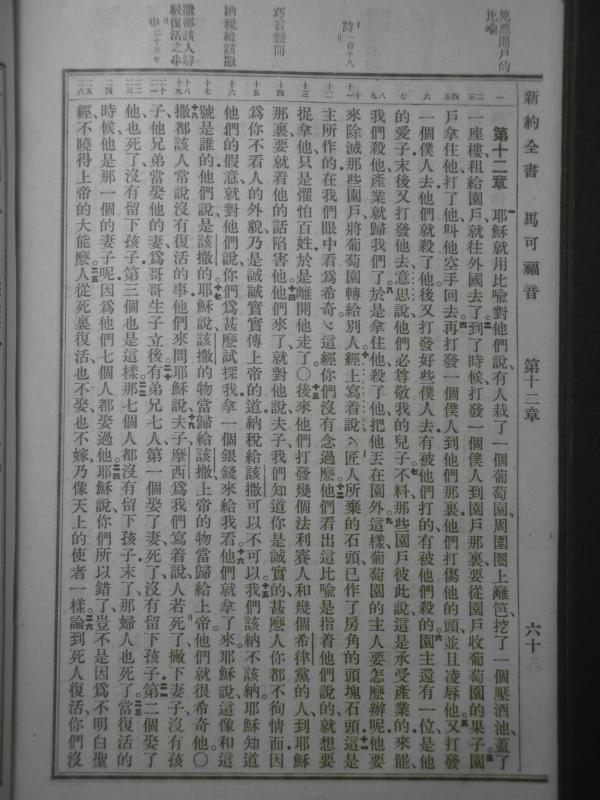 新約全書 馬可福音 第十二章 六十
園戶的
比喻
詩一百十八
巧言盤問
納稅給該撒
撒都該人辯
駁復活之事
申二十五
第十二章 耶穌就用比喻對他們說、有人栽了一個葡萄園、周圍圈上籬笆、挖了一個壓酒池、蓋了
一座樓、租給園戶、就往外國去了。到了時候、打發一個僕人到園戶那裏、要從園戶收葡萄園的果子。園
戶拿住他、打了他、叫他空手回去。再打發一個僕人到他們那裏、他們打傷他的頭、並且凌辱他。又打發
一個僕人去、他們就殺了他。後又打發好些僕人去、有被他們打的、有被他們殺的。園主還有一位、是他
的愛子、末後又打發他去、意思說、他們必尊敬我的兒子。不料、那些園戶彼此說、這是承受產業的、來罷、
我們殺他、產業就歸我們了。於是拿住他、殺了他、把他丟在園外。這樣葡萄園的主人、要怎麼辦呢、他要
來除滅那些園戶、將葡萄園轉給別人。經上寫着說、匠人所棄的石頭、已作了房角的頭塊石頭、這是
主所作的、在我們眼中看爲希奇、這經你們沒有念過麼。他們看出這比喻是指着他們說的、就想要
捉拿他、只是懼怕百姓、於是離開他走了。○後來他們打發幾個法利賽人和幾個希律黨的人、到耶穌
那裏、要就着他的話陷害他。他們來了、就對他說、夫子、我們知道你是誠實的、甚麼人你都不徇情面、因
爲你不看人的外貌、乃是誠誠實實傳上帝的道、納稅給該撒、可以不可以。我們該納不該納、耶穌知道
他們的假意、就對他們說、你們爲甚麼試探我、拿一個銀錢來給我看。他們就拿了來、耶穌說、這像和這
號是誰的、他們說、是該撒的。耶穌說、該撒的物當歸給該撒、上帝的物當歸給上帝、他們就很希奇他。○
撒都該人常說沒有復活的事、他們來問耶穌說、夫子、摩西爲我們寫着說、人若死了、撇下妻子、沒有孩
子、他兄弟當娶他的妻、爲哥哥生子立後。有弟兄七人、第一個娶了妻、死了、沒有留下孩子。第二個娶了
他、也死了、沒有留下孩子、第三個也是這樣。那七個人都沒有留下孩子、末了、那婦人也死了。當復活的
時候、他是那一個的妻子呢、因爲他們七個人都娶過他。耶穌說、你們所以錯了、豈不是因爲不明白聖
經、不曉得上帝的大能麼。人從死裏復活、也不娶、也不嫁、乃像天上的使者一樣。論到死人復活、你們沒